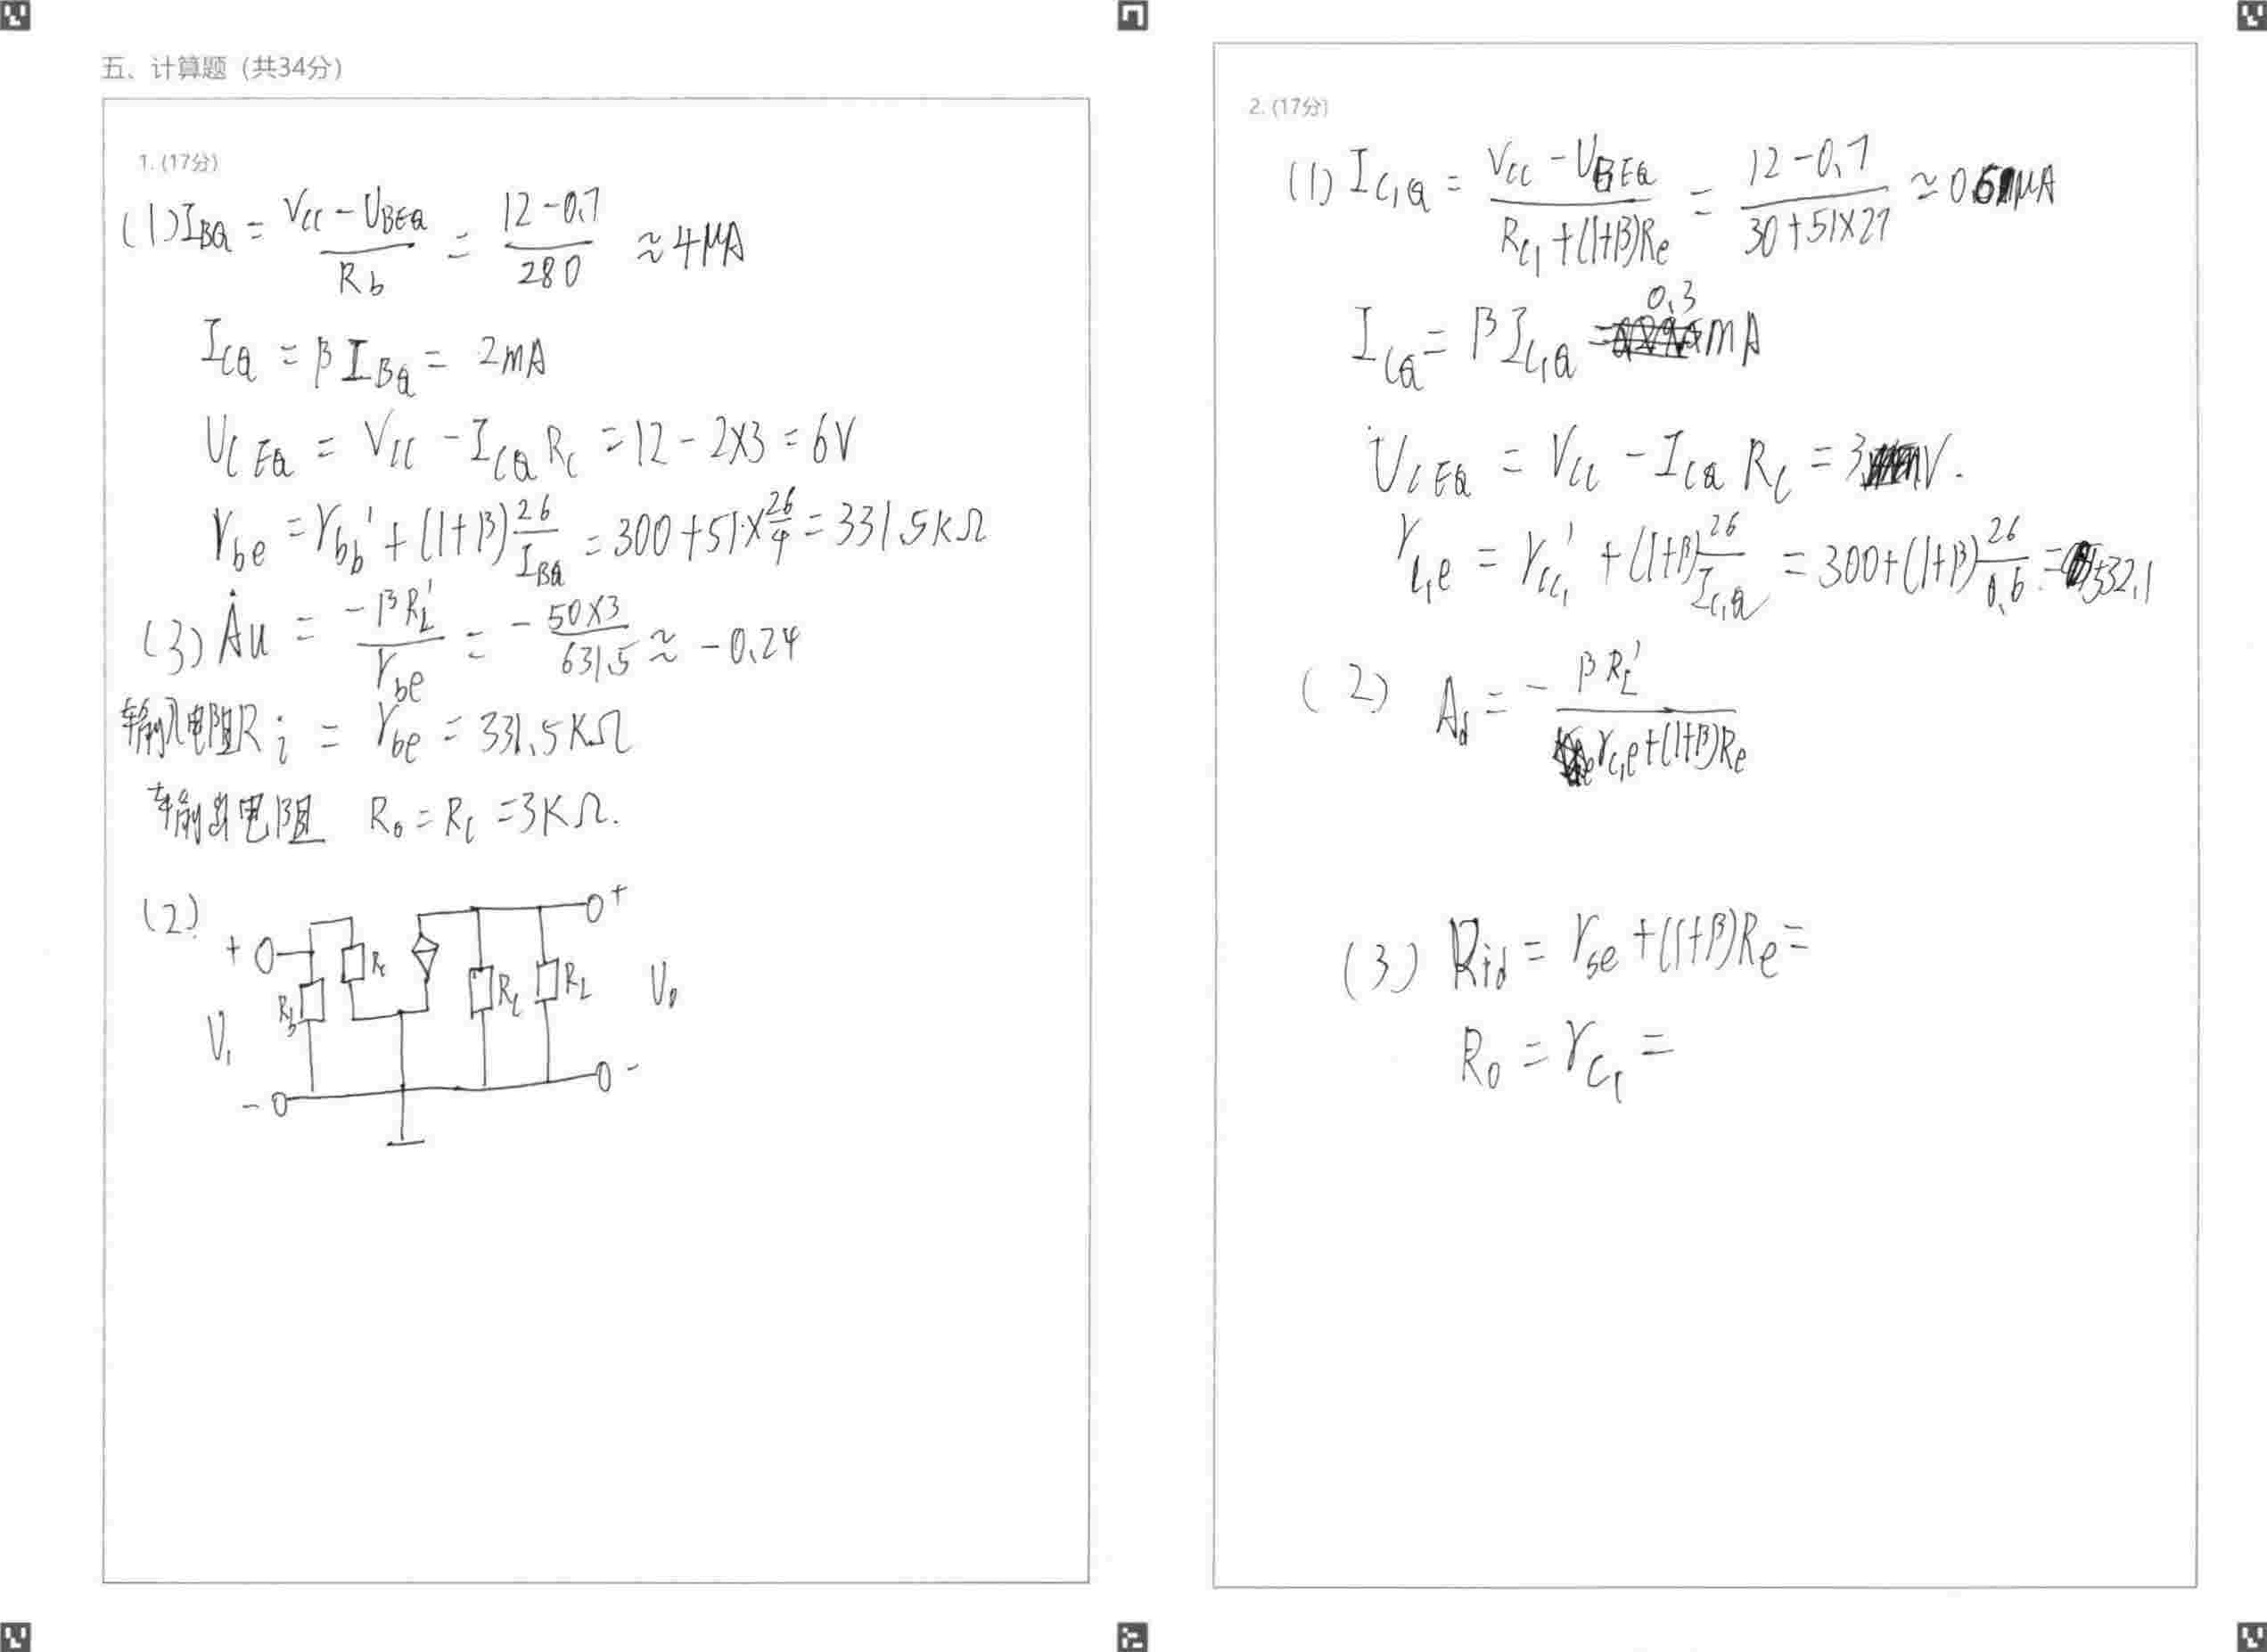 五、计算题（共34分）
1. (17分)
(1) I_BQ = (V_CC - U_BEQ) / R_b = (12 - 0.7) / 280 ≈ 4μA
I_CQ = β I_BQ = 2mA
U_CEQ = V_CC - I_CQ R_C = 12 - 2×3 = 6V
r_be = r_bb' + (1+β) 26/I_BQ = 300 + 51×26/4 = 331.5KΩ
(3)Ȧu = -βR_L' / r_be = - 50×3 / 631.5 ≈ -0.24
输入电阻R_i = r_be = 331.5KΩ
输出电阻 R_o = R_C = 3KΩ.
(2)
+ +
R_b R_C R_L
U_i U_o
- -
2. (17分)
(1) I_C1Q = (V_CC - U_BEQ) / (R_C1 + (1+β)R_e) = (12 - 0.7) / (30 + 51×27) ≈ μA
I_CQ = β I_C1Q = 0.3 mA
U_CEQ = V_CC - I_CQ R_C = 3V.
r_C1e = r_CC1' + (1+β) 26/I_C1Q = 300 + (1+β) 26/0.6 = 532.1
(2) A_d = - βR_L' / (r_C1e + (1+β)R_e)
(3) R_id = r_be + (1+β)R_e =
R_o = r_C1 =